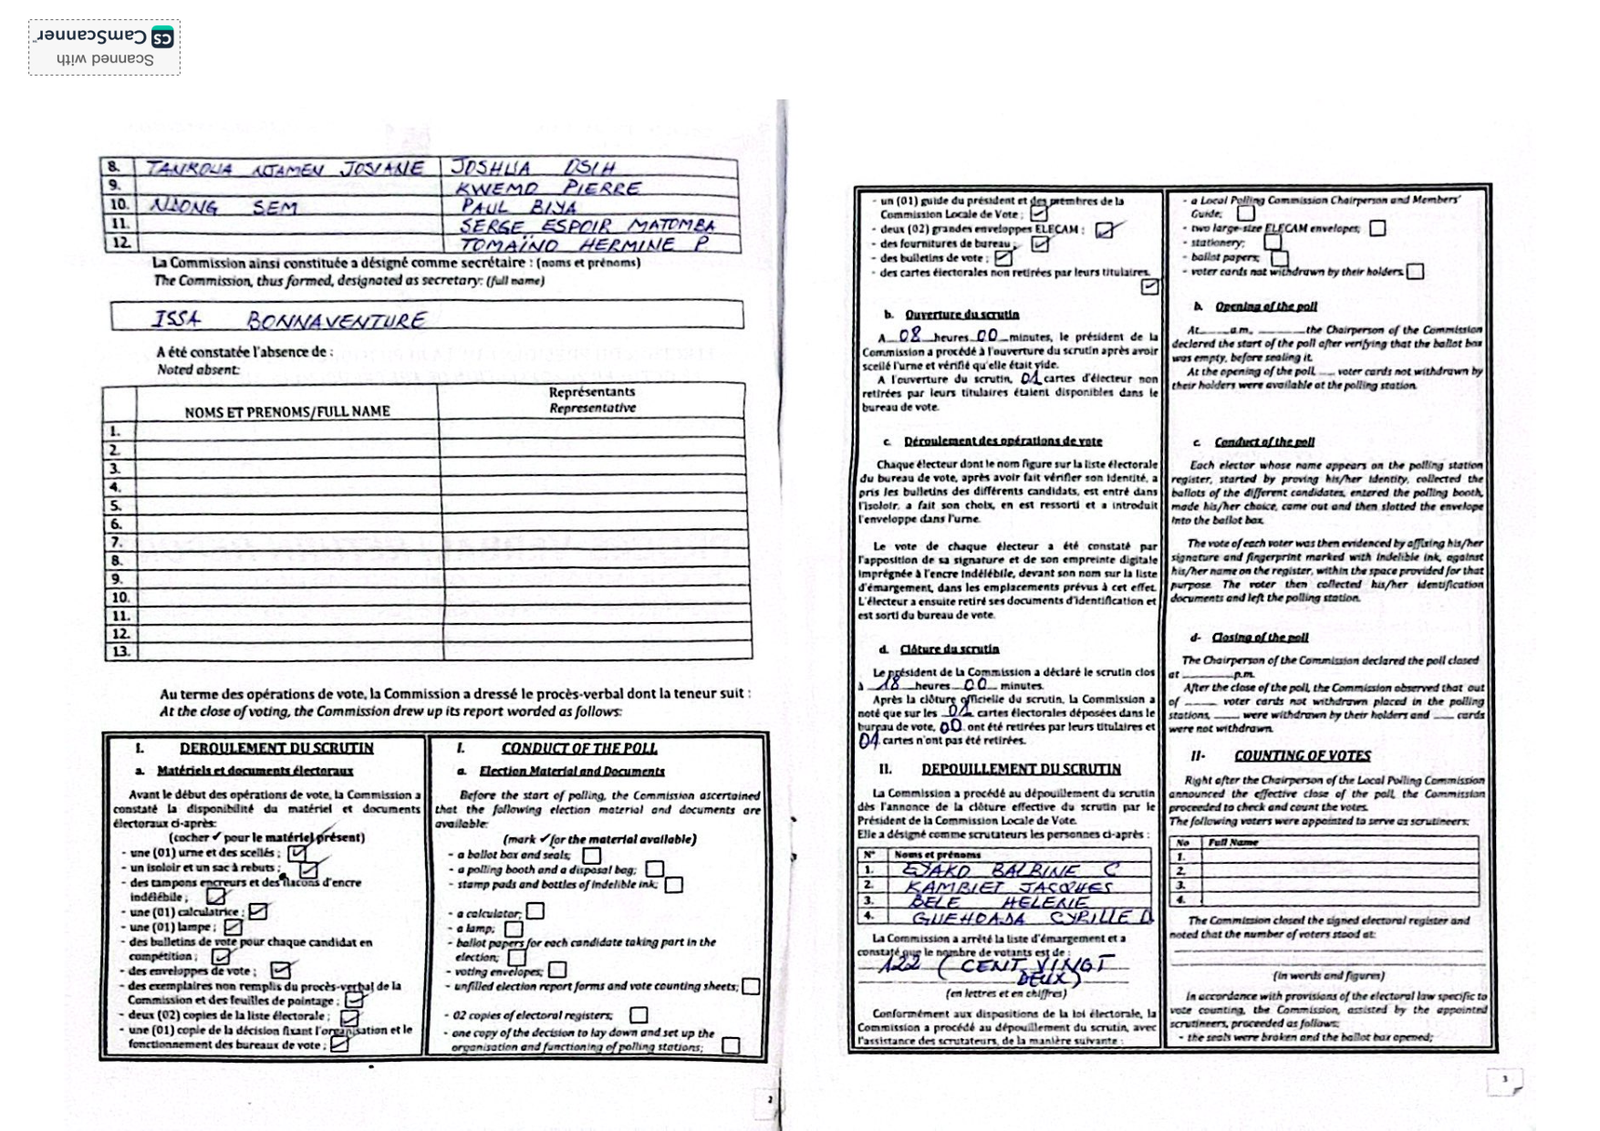 Scanned with
CS CamScanner
8. TANKOUA NJAMEN JOSIANE JOSHUA OSIH
9. KWEMO PIERRE
10. NJONG SEM PAUL BIYA
11. SERGE ESPOIR MATOMBA
12. TOMAÏNO HERMINE P
La Commission ainsi constituée a désigné comme secrétaire : (noms et prénoms)
The Commission, thus formed, designated as secretary: (full name)
ISSA BONNAVENTURE
A été constatée l'absence de :
Noted absent:
NOMS ET PRENOMS/FULL NAME
Représentants
Representative
1.
2.
3.
4.
5.
6.
7.
8.
9.
10.
11.
12.
13.
Au terme des opérations de vote, la Commission a dressé le procès-verbal dont la teneur suit :
At the close of voting, the Commission drew up its report worded as follows:
I. DEROULEMENT DU SCRUTIN
a. Matériels et documents électoraux
Avant le début des opérations de vote, la Commission a
constaté la disponibilité du matériel et documents
électoraux ci-après:
(cocher ✓ pour le matériel présent)
- une (01) urne et des scellés ; ☑
- un isoloir et un sac à rebuts ; ☑
- des tampons encreurs et des flacons d'encre
indélébile ; ☑
- une (01) calculatrice ; ☑
- une (01) lampe ; ☑
- des bulletins de vote pour chaque candidat en
compétition ; ☑
- des enveloppes de vote ; ☑
- des exemplaires non remplis du procès-verbal de la
Commission et des feuilles de pointage ; ☑
- deux (02) copies de la liste électorale ; ☑
- une (01) copie de la décision fixant l'organisation et le
fonctionnement des bureaux de vote ; ☑
I. CONDUCT OF THE POLL
a. Election Material and Documents
Before the start of polling, the Commission ascertained
that the following election material and documents are
available:
(mark ✓ for the material available)
- a ballot box and seals; ☐
- a polling booth and a disposal bag; ☐
- stamp pads and bottles of indelible ink; ☐
- a calculator; ☐
- a lamp; ☐
- ballot papers for each candidate taking part in the
election; ☐
- voting envelopes; ☐
- unfilled election report forms and vote counting sheets; ☐
- 02 copies of electoral registers; ☐
- one copy of the decision to lay down and set up the
organisation and functioning of polling stations; ☐
2
- un (01) guide du président et des membres de la
Commission Locale de Vote ; ☑
- deux (02) grandes enveloppes ELECAM ; ☑
- des fournitures de bureau ; ☑
- des bulletins de vote ; ☑
- des cartes électorales non retirées par leurs titulaires.
☑
b. Ouverture du scrutin
A 08 heures 00 minutes, le président de la
Commission a procédé à l'ouverture du scrutin après avoir
scellé l'urne et vérifié qu'elle était vide.
A l'ouverture du scrutin, 01 cartes d'électeur non
retirées par leurs titulaires étaient disponibles dans le
bureau de vote.
c. Déroulement des opérations de vote
Chaque électeur dont le nom figure sur la liste électorale
du bureau de vote, après avoir fait vérifier son identité, a
pris les bulletins des différents candidats, est entré dans
l'isoloir, a fait son choix, en est ressorti et a introduit
l'enveloppe dans l'urne.
Le vote de chaque électeur a été constaté par
l'apposition de sa signature et de son empreinte digitale
imprégnée à l'encre indélébile, devant son nom sur la liste
d'émargement, dans les emplacements prévus à cet effet.
L'électeur a ensuite retiré ses documents d'identification et
est sorti du bureau de vote.
d. Clôture du scrutin
Le président de la Commission a déclaré le scrutin clos
à 18 heures 00 minutes.
Après la clôture officielle du scrutin, la Commission a
noté que sur les 01 cartes électorales déposées dans le
bureau de vote, 00 ont été retirées par leurs titulaires et
01 cartes n'ont pas été retirées.
II. DEPOUILLEMENT DU SCRUTIN
La Commission a procédé au dépouillement du scrutin
dès l'annonce de la clôture effective du scrutin par le
Président de la Commission Locale de Vote.
Elle a désigné comme scrutateurs les personnes ci-après :
N° Noms et prénoms
1. EYAKO BALBINE C
2. KAMBIET JACQUES
3. BELE HELENE
4. GUEHOADA CYRILLE D
La Commission a arrêté la liste d'émargement et a
constaté que le nombre de votants est de :
122 (CENT VINGT
DEUX)
(en lettres et en chiffres)
Conformément aux dispositions de la loi électorale, la
Commission a procédé au dépouillement du scrutin, avec
l'assistance des scrutateurs, de la manière suivante :
- a Local Polling Commission Chairperson and Members'
Guide; ☐
- two large-size ELECAM envelopes; ☐
- stationery; ☐
- ballot papers; ☐
- voter cards not withdrawn by their holders ☐
b. Opening of the poll
At____a.m, ______the Chairperson of the Commission
declared the start of the poll after verifying that the ballot box
was empty, before sealing it.
At the opening of the poll, ___ voter cards not withdrawn by
their holders were available at the polling station.
c. Conduct of the poll
Each elector whose name appears on the polling station
register, started by proving his/her identity, collected the
ballots of the different candidates, entered the polling booth,
made his/her choice, came out and then slotted the envelope
into the ballot box.
The vote of each voter was then evidenced by affixing his/her
signature and fingerprint marked with indelible ink, against
his/her name on the register, within the space provided for that
purpose. The voter then collected his/her identification
documents and left the polling station.
d- Closing of the poll
The Chairperson of the Commission declared the poll closed
at ________p.m.
After the close of the poll, the Commission observed that out
of _____ voter cards not withdrawn placed in the polling
stations, ____ were withdrawn by their holders and ___ cards
were not withdrawn.
II- COUNTING OF VOTES
Right after the Chairperson of the Local Polling Commission
announced the effective close of the poll, the Commission
proceeded to check and count the votes.
The following voters were appointed to serve as scrutineers:
No Full Name
1.
2.
3.
4.
The Commission closed the signed electoral register and
noted that the number of voters stood at:
(in words and figures)
In accordance with provisions of the electoral law specific to
vote counting, the Commission, assisted by the appointed
scrutineers, proceeded as follows:
- the seals were broken and the ballot box opened;
3